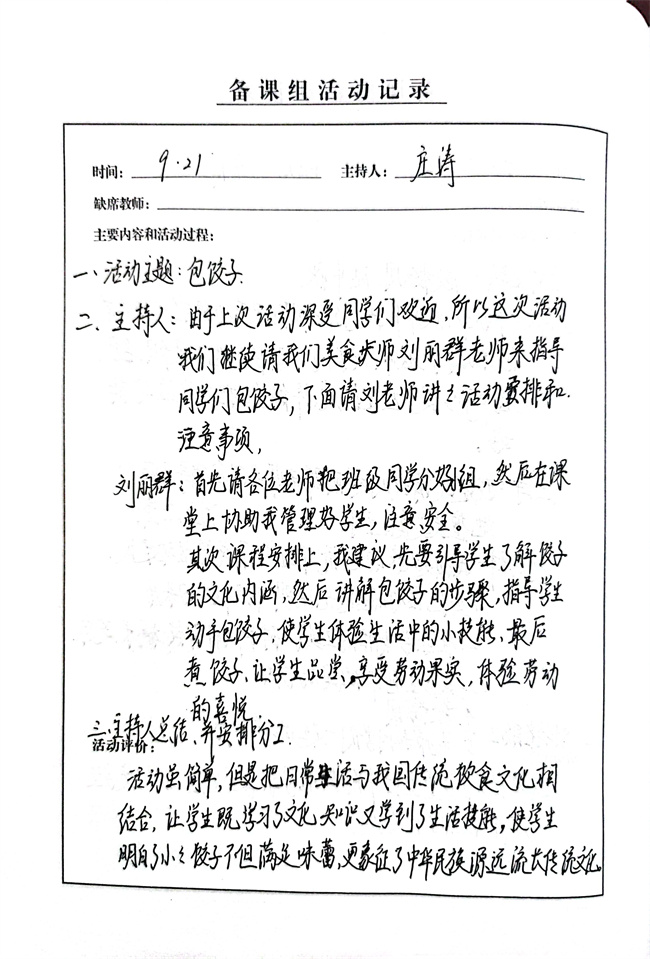 备课组活动记录
时间: 9.21 主持人: 庄涛
缺席教师:
主要内容和活动过程:
一、活动主题:包饺子.
二、主持人:由于上次活动深受同学们欢迎,所以这次活动
我们继使请我们美食大师刘丽群老师来指导
同学们包饺子,下面请刘老师讲之活动要排和.
注意事项,
刘丽群:首先请各位老师把班级同学分好组,然后在课
堂上协助我管理好学生,注意安全。
其次课程安排上,我建议,先要引导学生了解饺子
的文化内涵,然后讲解包饺子的步骤,指导学生
动手包饺子.使学生体验生活中的小技能、最后
煮饺子、让学生品尝,享受劳动果实,体验劳动
的喜悦.
三、主持人总结、并安排分工.
活动评价:
活动虽简单,但是把日常生活与我国传统饮食文化相
结合,让学生既学习了文化知识又学到了生活技能,使学生
明白了小之饺子不但满足味蕾,更象征了中华民族源远流长传统文化